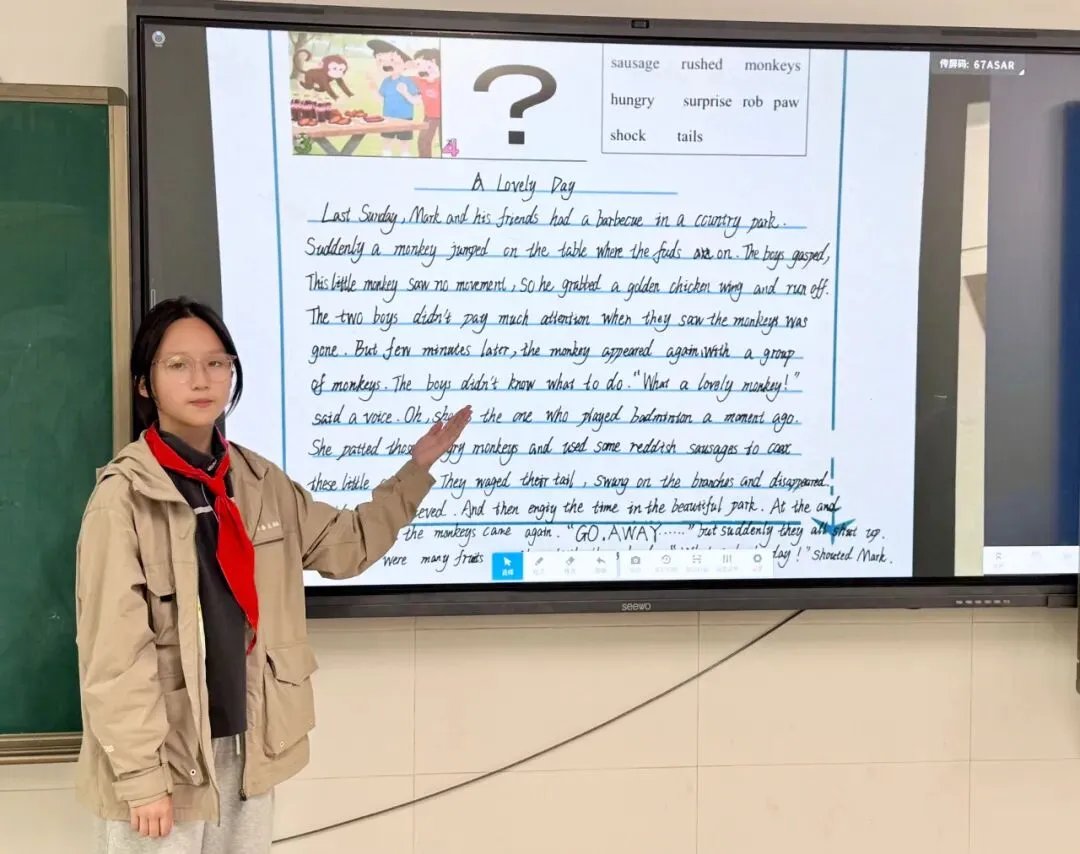 传屏码: 67ASAR
sausage rushed monkeys
hungry surprise rob paw
shock tails
3
?
4
A Lovely Day
Last Sunday, Mark and his friends had a barbecue in a country park.
Suddenly a monkey jumped on the table where the fuds on. The boys gasped,
This little monkey saw no movement, so he grabbed a golden chicken wing and run off.
The two boys didn't pay much attention when they saw the monkeys was
gone. But few minutes later, the monkey appeared again, with a group
of monkeys. The boys didn't know what to do. "What a lovely monkey!"
said a voice. Oh, the one who played badminton a moment ago.
She patted monkeys and used some reddish sausages to coax
these little They waged their tail, swung on the branches and disappeared.
And then enjoy the time in the beautiful park. At the and
the monkeys came again. "GO. AWAY ......" but suddenly they all shut up.
were many fruits day!" shouted Mark.
seewo